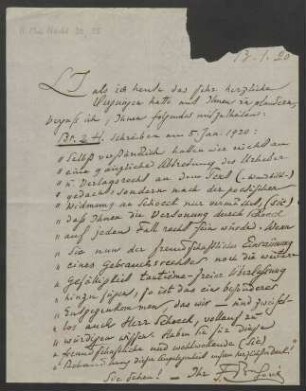 13. 1. 20
L. F.
als ich heute das sehr herzliche
Vergnügen hatte mit Ihnen zu plaudern,
vergaß ich, Ihnen folgendes mitzuteilen:
Br. & H. schreiben am 5. Jan. 1920:
„Selbstverständlich haben wir nicht an
„eine gänzliche Abtretung des Urheber
„u. Verlagsrecht an dem Text
„gedacht sondern nach der poetischen
„Widmung an Schoeck nur vermutet (sic),
„daß Ihnen die Vertonung durch Schoeck
„auf jeden Fall recht sein würde. Wenn
„Sie nun der freundschaftlichen Einräumung
„eines Gebrauchsrechtes noch die weitere
„Gefälligkeit tantième-freier Überlassung
„hinzufügen, so ist das ein besonderes
„Entgegenkommen, das wir – und zweifel-
„los auch Herr Schoeck, vollauf zu
„würdigen wissen. Haben Sie für diese
„freundschaftliche und wohlwollende (sic)
„Behandlung dieser Angelegenheit unsern
Sie sehen! – Ihr